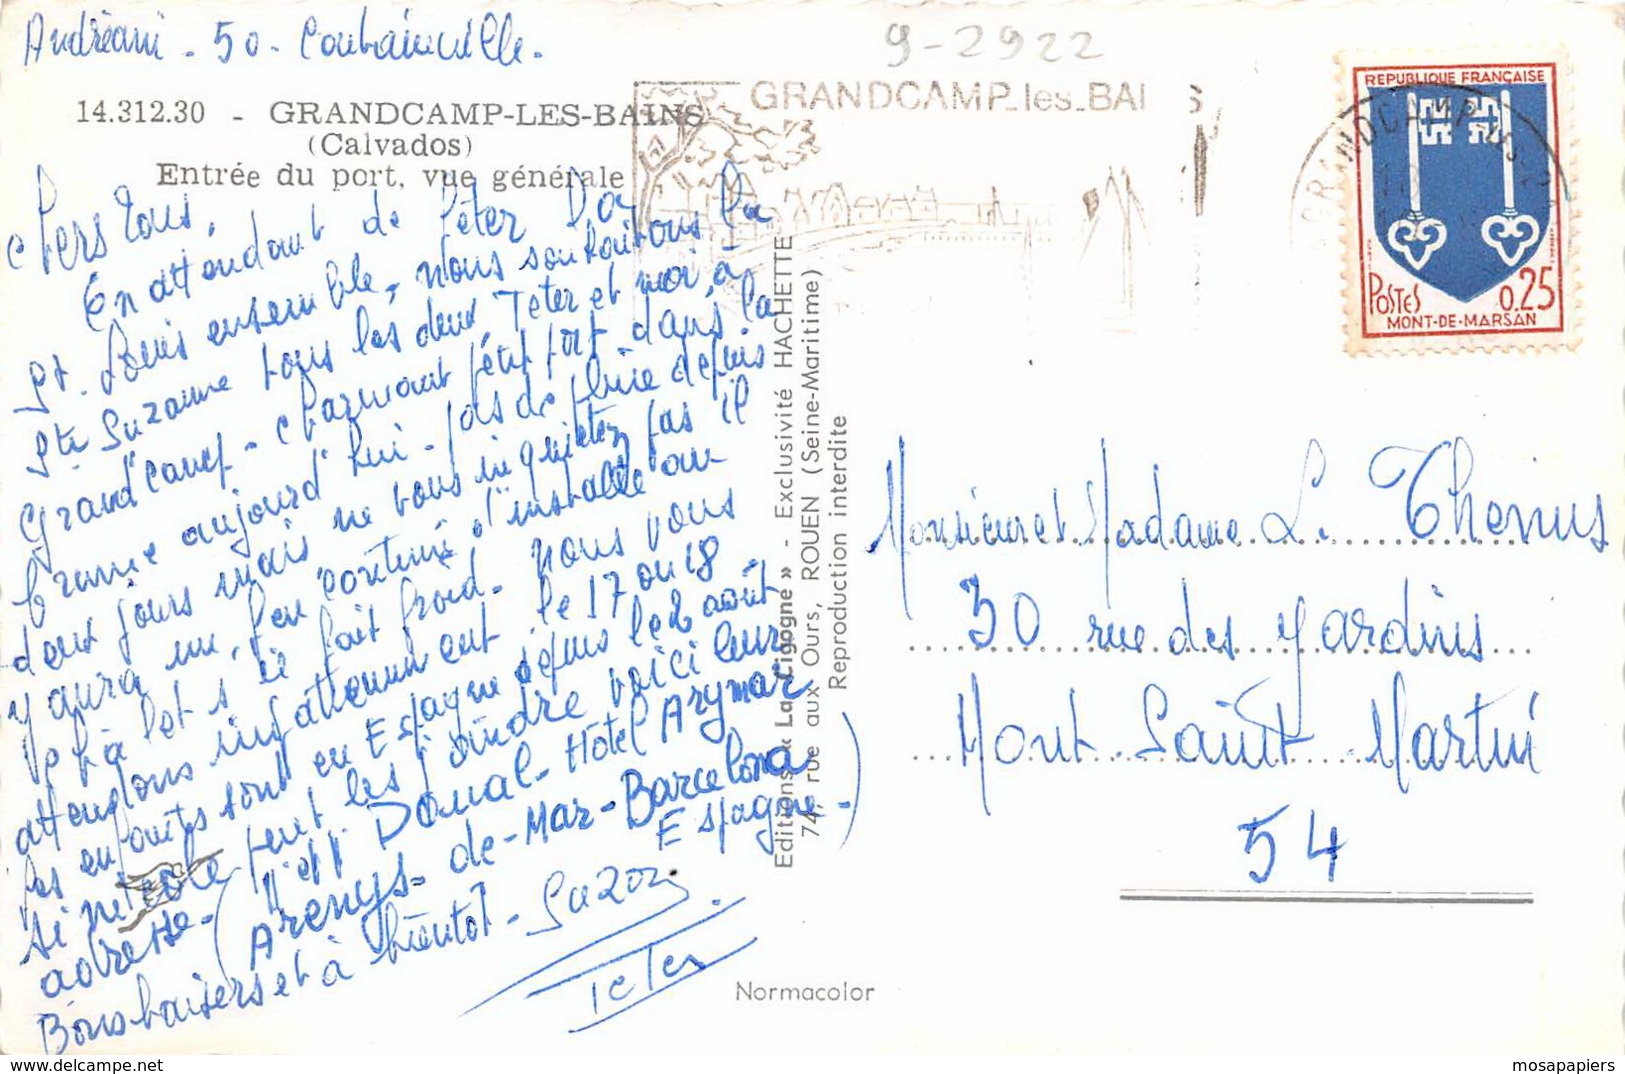 Andréani - 50 - Coutainville.
9-2922
14.312.30 - GRANDCAMP-LES-BAINS
(Calvados)
Entrée du port, vue générale
GRANDCAMP-les-BAINS
GRANDCAMP-les-B
REPUBLIQUE FRANÇAISE
POSTES 0,25
MONT-DE-MARSAN
Chers tous,
En attendant de fêter la
St. Louis ensemble, nous souhaitons la
Ste Suzanne tous les deux Peter et moi, à
Grand camp - charmant petit port dans la
brume aujourd'hui - pas de pluie depuis
deux jours mais ne vous inquiétez pas il
y aura un peu
il fait froid - nous vous
attendons impatiemment le 17 ou 18
les enfants sont en Espagne depuis le 2 août
si Nicole peut les joindre voici leur
adresse - (Mr Douval - Hôtel Arymar
Arenys - de - Mar - Barcelona
Espagne -)
Bons baisers et à bientôt - Suzon
Peter
Editions « La Cigogne » - Exclusivité HACHETTE
74, rue aux Ours, ROUEN (Seine-Maritime)
Reproduction interdite
Monsieur et Madame L. Thenus
30 rue des Jardins
Mont Saint Martin
54
Normacolor
mosapapiers